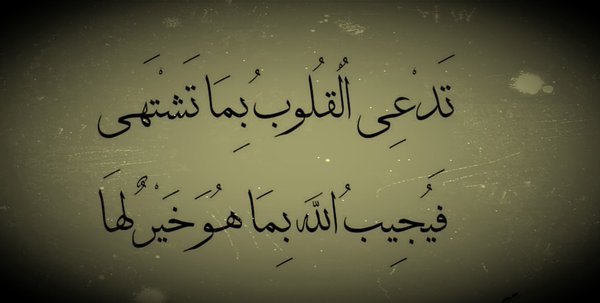 تَدْعِى الُقلُوبُ بِمَا تَشْتَهَى
فَيُجِيبُ اللَّهَ بِمَا هُوَ خَيْرٌ لهَا